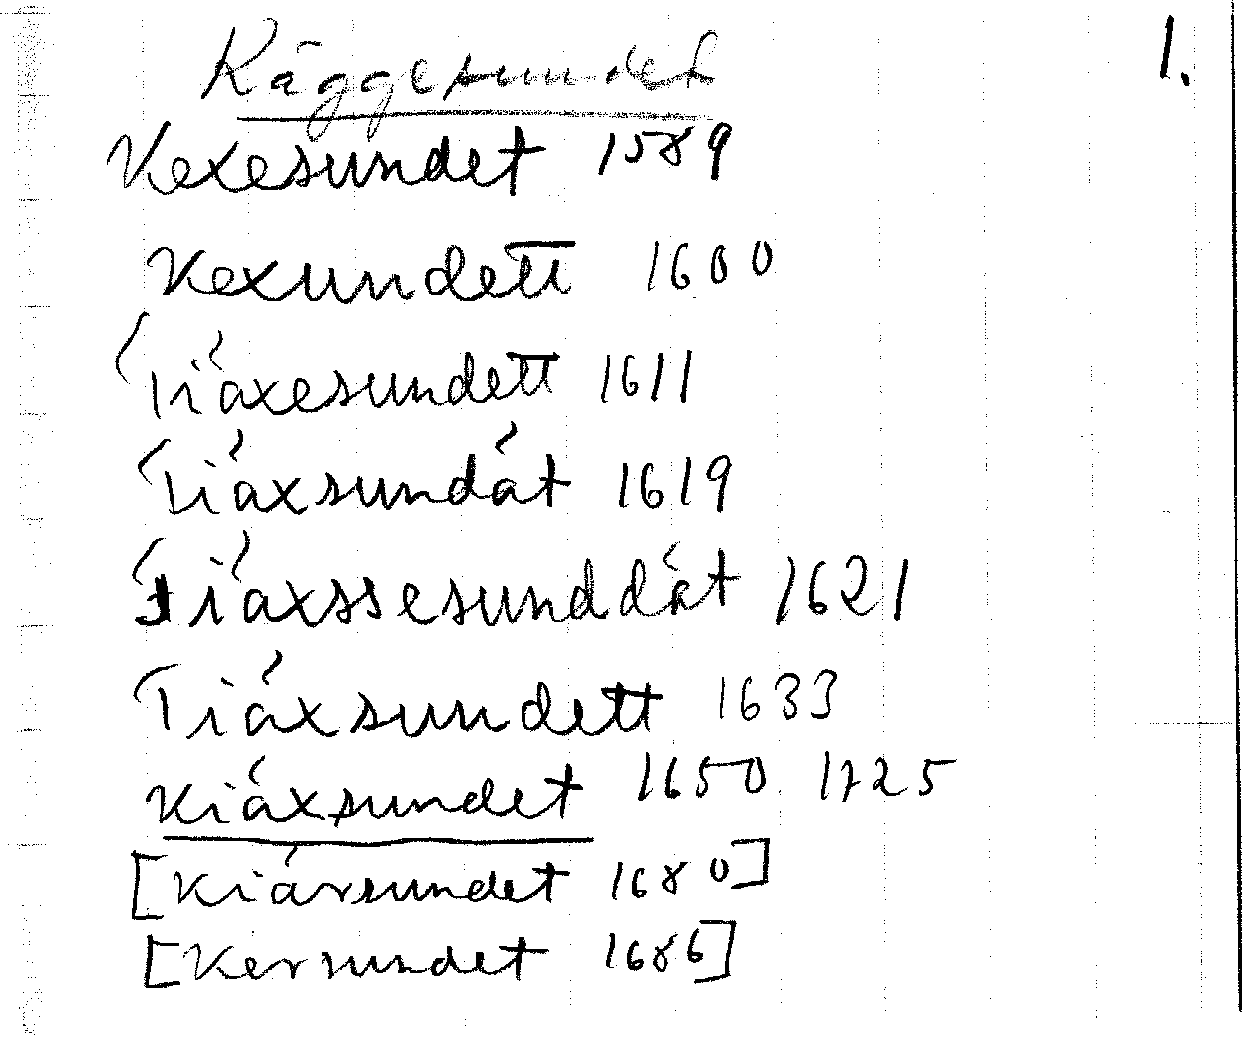 Käggesundet
1.
Kexesundet 1589
Kexundett 1600
Tiáxesundett 1611
Tiáxsundát 1619
Tiáxssesunddát 1621
Tiáxsundett 1633
Kiáxsundet 1650 1725
[Kiársundet 1680]
[Kersundet 1686]